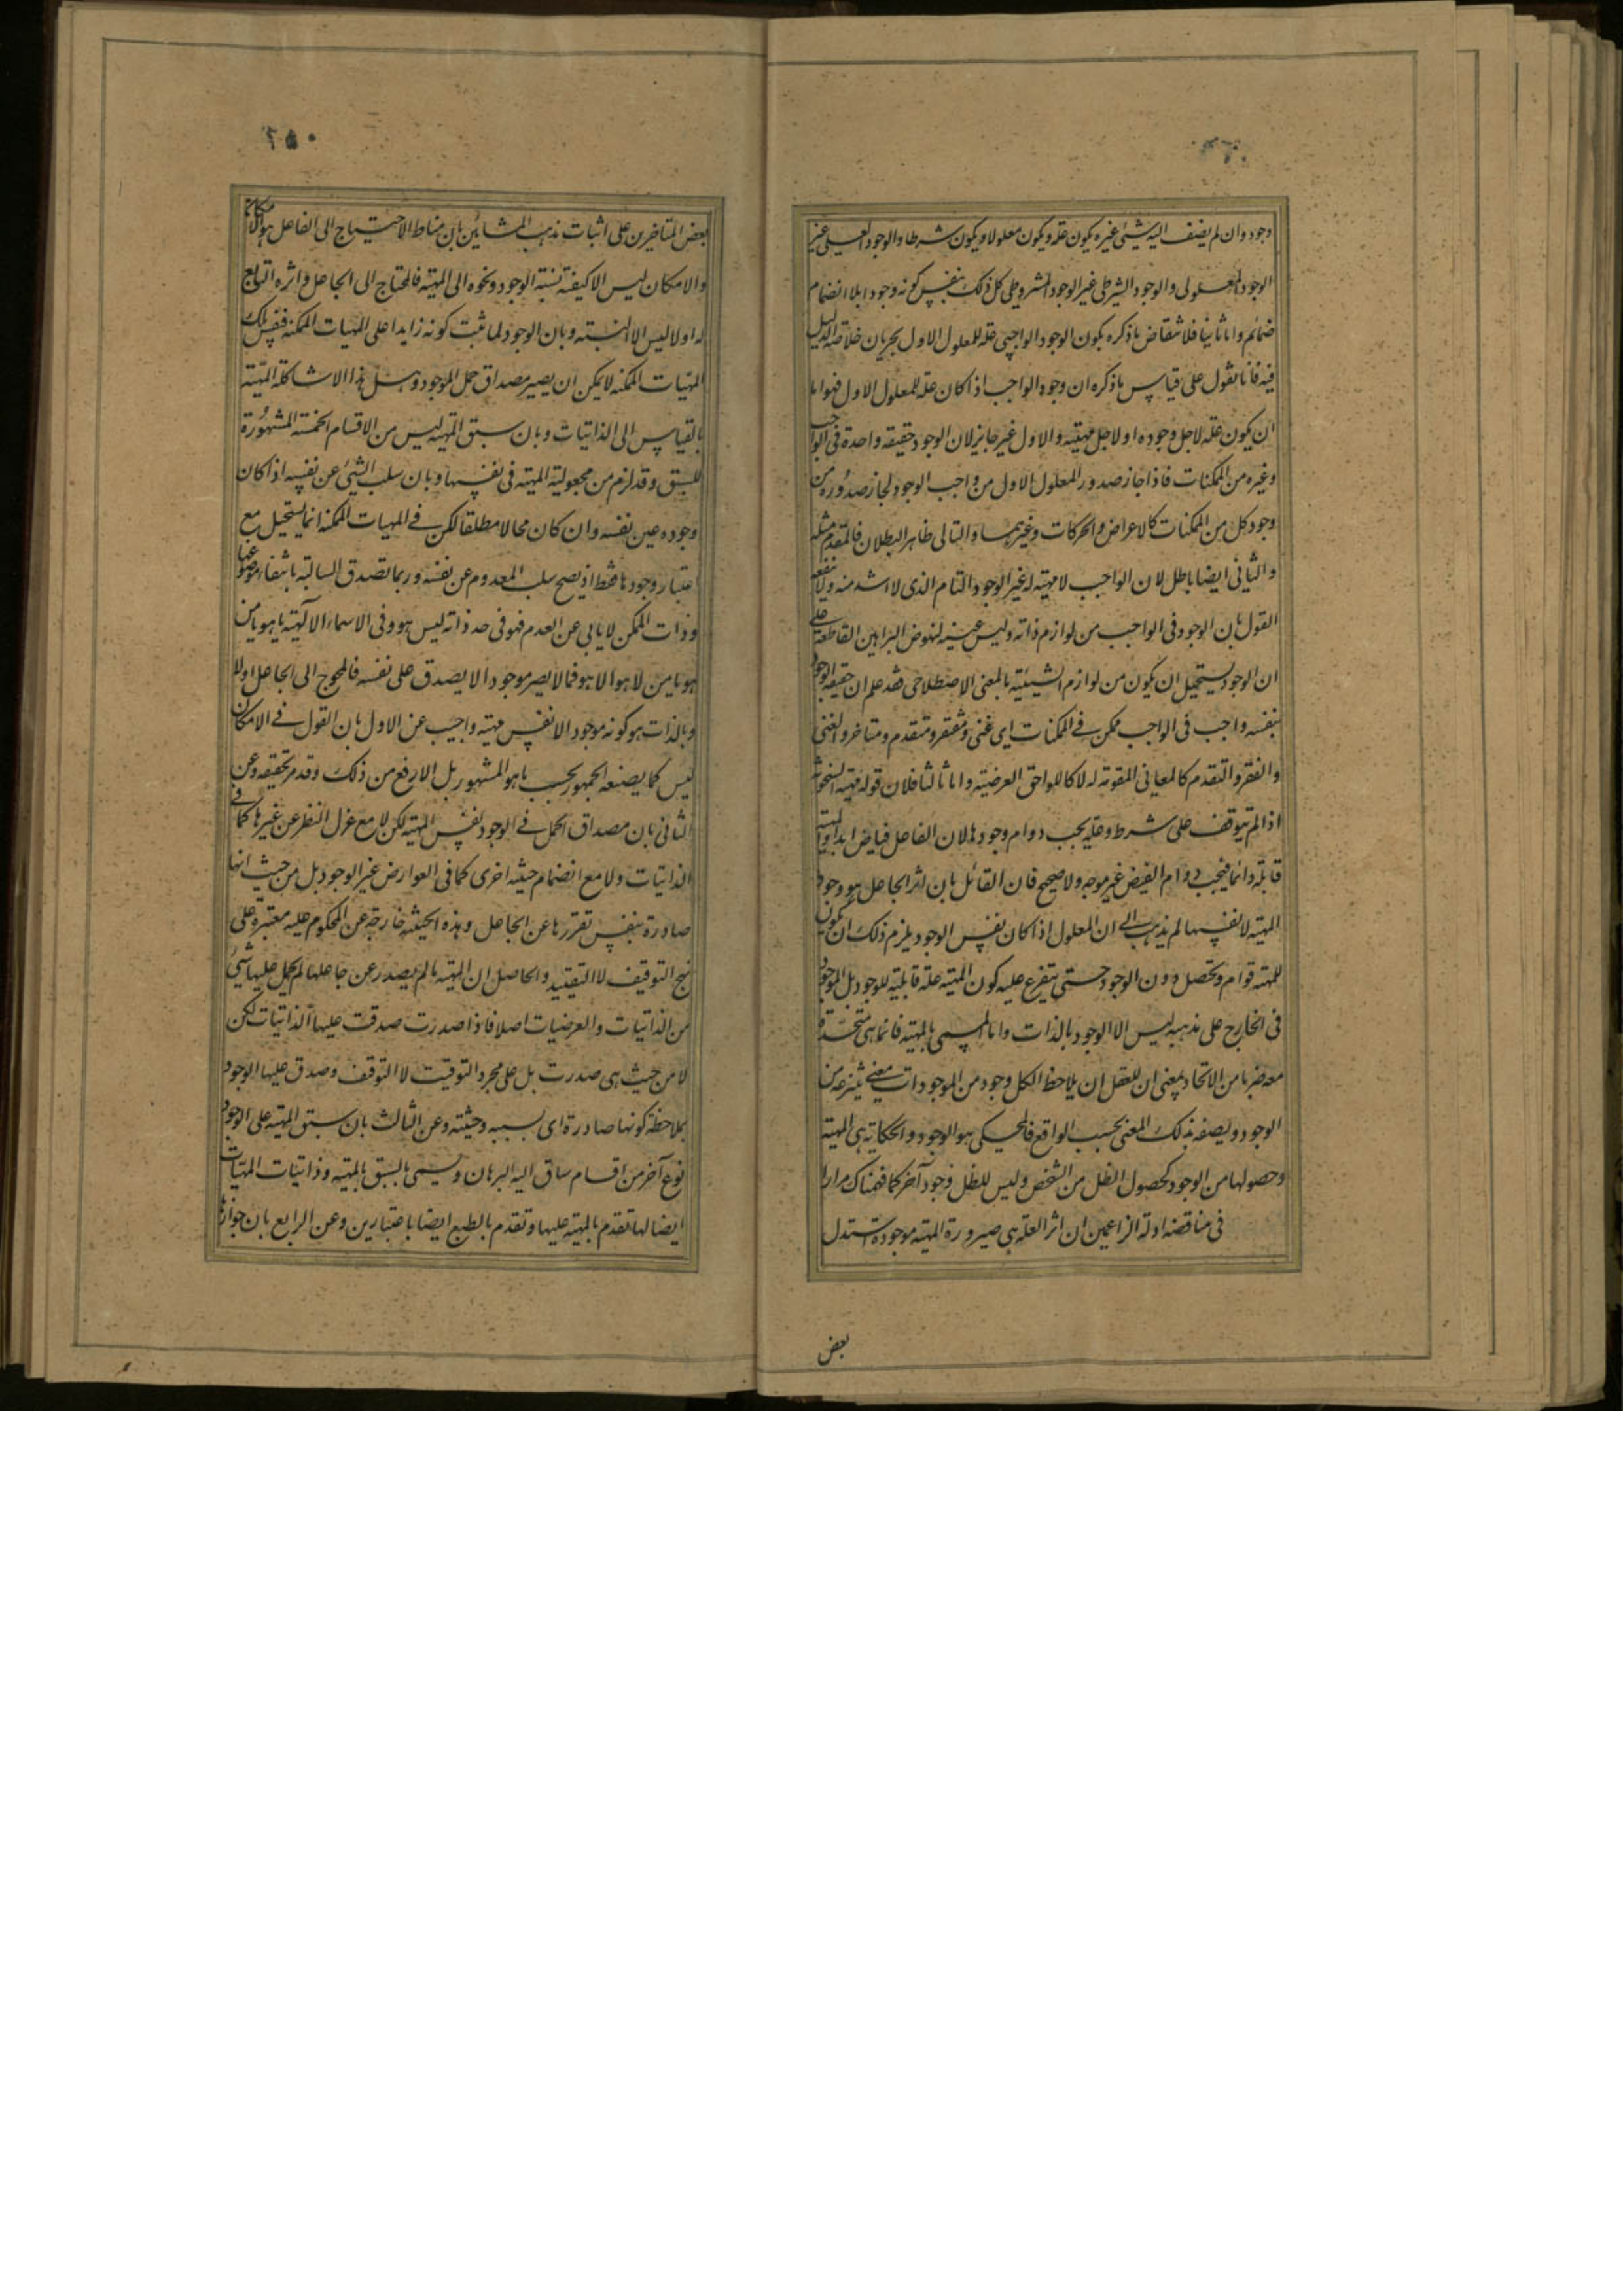 وجود وان لم يضف اليه شيئ غيره يكون علة ويكون معلولا ويكون شرطا والوجود العلى غير
الوجود المعلولى والوجود الشرطى غير الوجود المشروطى كل ذلك بنفس كونه وجودا بلا انضمام
ضمائم واما ثانيا فلانتقاض ما ذكره بكون الوجود الواجبى علة للمعلول الاول بجريان خلاصة الدليل
فيه فانا نقول على قياس ما ذكره ان وجود الواجب اذا كان علة للمعلول الاول فهو اما
ان يكون علة لاجل وجوده او لاجل مهيته والاول غير جايز لان الوجود حقيقة واحدة فى الواجب
وغيره من الممكنات فاذا جاز صدور المعلول الاول من واجب الوجود لجاز صدوره من
وجود كل من الممكنات كالاعراض والحركات وغيرهما والتالى ظاهر البطلان فالمقدم مثله
والثانى ايضا باطل لان الواجب لا مهية له غير الوجود التام الذى لا اشد منه ولا ينفعه
القول بان الوجود فى الواجب من لوازم ذاته وليس عينه لنهوض البراهين القاطعة على
ان الوجود يستحيل ان يكون من لوازم الشيئية بالمعنى الاصطلاحى فقد علم ان حقيقة الوجود
بنفسه واجب فى الواجب ممكن فى الممكنات اى غنى ومفتقر ومتقدم ومتاخر والغنى
والفقر والتقدم كالمعانى المقومة له لا كاللواحق العرضية واما ثالثا فلان قوله مهية الحوادث
اذا لم يتوقف على شرط وعلة يجب دوام وجودها لان الفاعل فياض ابدا والمهية
قابلة دائما فيجب دوام الفيض غير موجه ولا صحيح فان القائل بان اثر الجاعل هو وجود
المهية لا نفسها لم يذهب الى ان المعلول اذا كان نفس الوجود يلزم ذلك ان يكون
للمهية قوام وتحصل دون الوجود حتى يتفرع عليه كون المهية علة قابلية للوجود بل الموجود
فى الخارج على مذهبه ليس الا الوجود بالذات واما المسمى بالمهية فانما هى متحدة
معه ضربا من الاتحاد بمعنى ان للعقل ان يلاحظ لكل وجود من الموجودات معنى ينتزعه من
الوجود ويصفه بذلك المعنى بحسب الواقع فالمحكى هو الوجود والحكاية هى المهية
وحصولها من الوجود كحصول الظل من الشخص وليس للظل وجود آخر كما فهمناك مرارا
فى مناقضة ادلة الزاعمين ان اثر العلة هى صيرورة المهية موجودة استدل
بعض
٢٥٠
بعض المتاخرين على اثبات مذهب المشائين بان مناط الاحتياج الى الفاعل هو الامكان
والامكان ليس الا كيفية نسبة الوجود ونحوه الى المهية فالمحتاج الى الجاعل واثره التابع
له اولا ليس الا النسبة وبان الوجود لما ثبت كونه زايدا على المهيات الممكنة فنفس تلك
المهيات الممكنة لا يمكن ان يصير مصداق حمل الموجود وهل هذا الا شاكلة المهية
بالقياس الى الذاتيات وبان سبق المهية ليس من الاقسام الخمسة المشهورة
للسبق وقد لزم من مجعولية المهية فى نفسها وبان سلب الشيئ عن نفسه اذا كان
وجوده عين نفسه وان كان محالا مطلقا لكن فى المهيات الممكنة انما يستحيل مع
اعتبار وجودها فقط اذ يصح سلب المعدوم عن نفسه وربما تصدق السالبة بانتفاء موضوعها
وذات الممكن لا يابى عن العدم فهو فى حد ذاته ليس هو وفى الاسماء الالهية يا هو يا من
هو يا من لا هو الا هو فما لا يصير موجودا لا يصدق على نفسه فالمحوج الى الجاعل اولا
وبالذات هو كونه موجودا لا نفس مهيته واجيب عن الاول بان القول فى الامكان
ليس كما يصنعه الجمهور بحسب ما هو المشهور بل الارفع من ذلك وقد مر تحقيقه وعن
الثانى بان مصداق الحمل فى الوجود نفس المهية لكن لا مع عزل النظر عن غيرها كما فى
الذاتيات ولا مع انضمام حيثية اخرى كما فى العوارض غير الوجود بل من حيث انها
صادرة بنفس تقررها عن الجاعل وهذه الحيثية خارجة عن المحكوم عليه معتبرة على
نهج التوقيف لا التقييد والحاصل ان المهية ما لم يصدر عن جاعلها لم يحمل عليها شيئ
من الذاتيات والعرضيات اصلا فاذا صدرت صدقت عليها الذاتيات لكن
لا من حيث هى صدرت بل على مجرد التوقيت لا التوقف وصدق عليها الوجود
بملاحظة كونها صادرة اى بسببه وحيثيته وعن الثالث بان سبق المهية على الوجود
نوع آخر من اقسام ساق اليه البرهان ويسمى بالسبق بالمهية وذاتيات المهيات
ايضا لها تقدم بالمهية عليها وتقدم بالطبع ايضا باعتبارين وعن الرابع بان جوازها